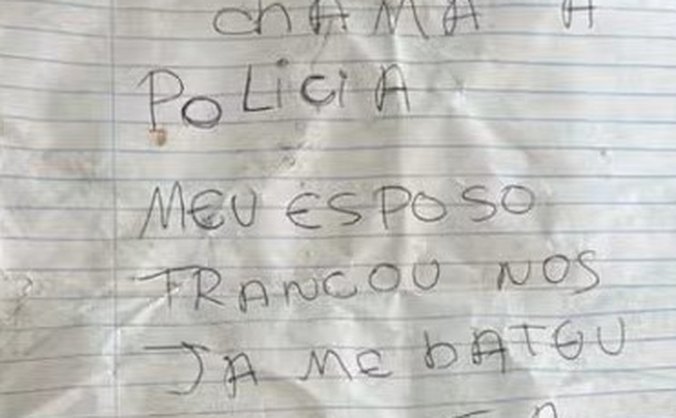 chAMA A
POLiCiA
MEU ESPOSO
TRANCOU NOS
JA ME bATEU